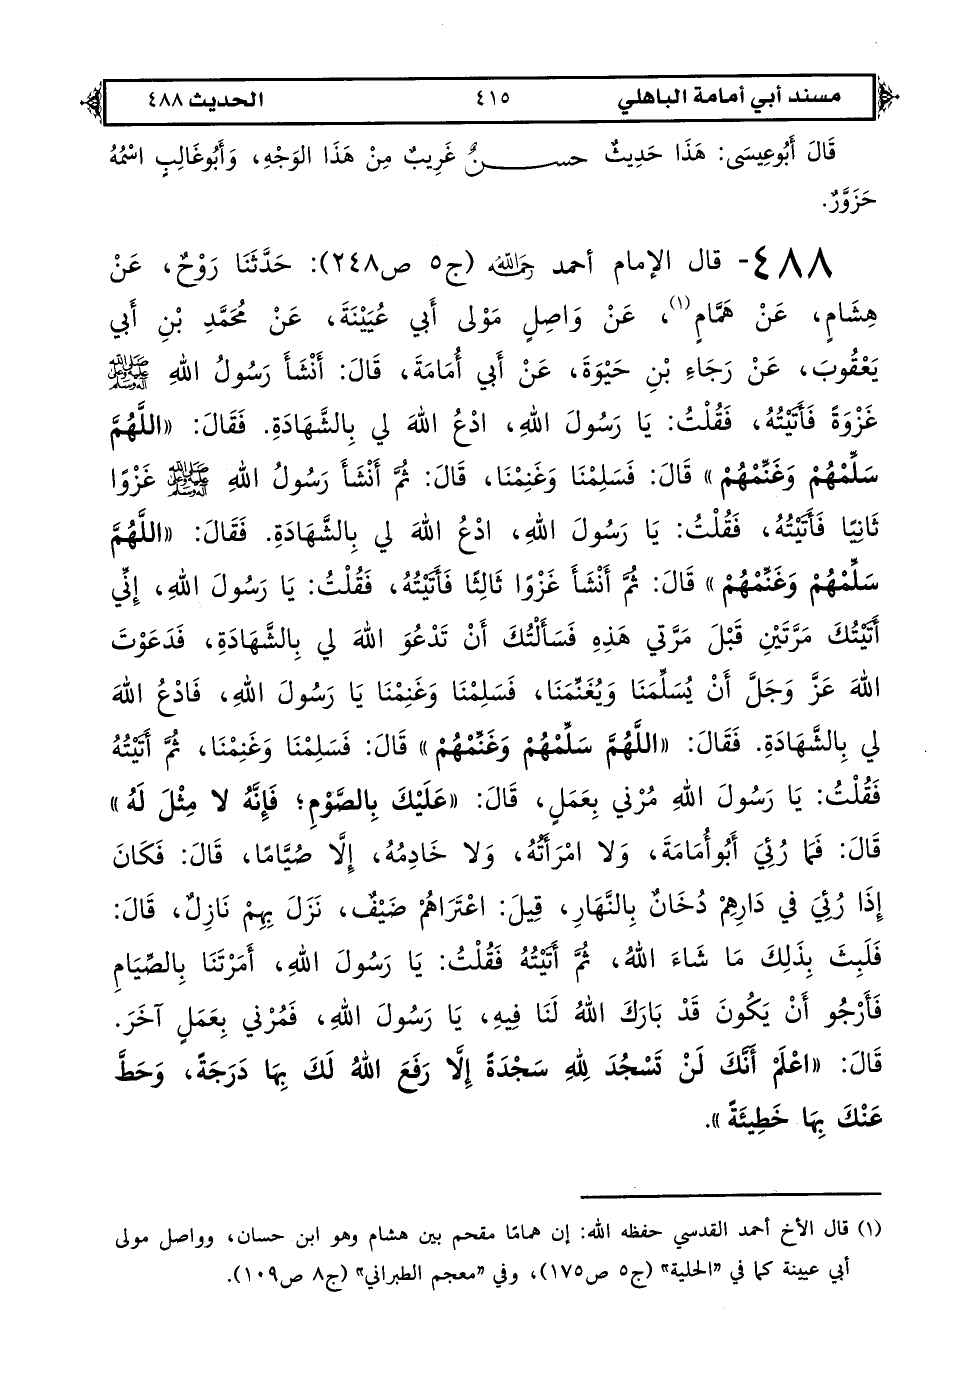 مسند أبي أمامة الباهلي ٤١٥ الحديث ٤٨٨
قَالَ أَبُوعِيسَى: هَذَا حَدِيثٌ حســـــنٌ غَرِيبٌ مِنْ هَذَا الوَجْهِ، وَأَبُوغَالِبٍ اسْمُهُ
حَزَوَّرٌ.
٤٨٨- قال الإمام أحمد رحمه الله (ج٥ ص٢٤٨): حَدَّثَنَا رَوْحٌ، عَنْ
هِشَامٍ، عَنْ هَمَّامٍ(١)، عَنْ وَاصِلٍ مَوْلى أبي عُيَيْنَةَ، عَنْ مُحَمَّدِ بْنِ أبي
يَعْقُوبَ، عَنْ رَجَاءِ بْنِ حَيْوَةَ، عَنْ أبي أُمَامَةَ، قَالَ: أَنْشَأَ رَسُولُ اللهِ ﷺ
غَزْوَةً فَأَتَيْتُهُ، فَقُلْتُ: يَا رَسُولَ اللهِ، ادْعُ اللهَ لي بِالشَّهَادَةِ. فَقَالَ: «اللَّهُمَّ
سَلِّمْهُمْ وَغَنِّمْهُمْ» قَالَ: فَسَلِمْنَا وَغَنِمْنَا، قَالَ: ثُمَّ أَنْشَأَ رَسُولُ اللهِ ﷺ غَزْوًا
ثَانِيًا فَأَتَيْتُهُ، فَقُلْتُ: يَا رَسُولَ اللهِ، ادْعُ اللهَ لي بِالشَّهَادَةِ. فَقَالَ: «اللَّهُمَّ
سَلِّمْهُمْ وَغَنِّمْهُمْ» قَالَ: ثُمَّ أَنْشَأَ غَزْوًا ثَالِثًا فَأَتَيْتُهُ، فَقُلْتُ: يَا رَسُولَ اللهِ، إِنِّي
أَتَيْتُكَ مَرَّتَيْنِ قَبْلَ مَرَّتي هَذِهِ فَسَأَلْتُكَ أَنْ تَدْعُوَ اللهَ لي بِالشَّهَادَةِ، فَدَعَوْتَ
اللهَ عَزَّ وَجَلَّ أَنْ يُسَلِّمَنَا وَيُغَنِّمَنَا، فَسَلِمْنَا وَغَنِمْنَا يَا رَسُولَ اللهِ، فَادْعُ اللهَ
لي بِالشَّهَادَةِ. فَقَالَ: «اللَّهُمَّ سَلِّمْهُمْ وَغَنِّمْهُمْ» قَالَ: فَسَلِمْنَا وَغَنِمْنَا، ثُمَّ أَتَيْتُهُ
فَقُلْتُ: يَا رَسُولَ اللهِ مُرْني بِعَمَلٍ، قَالَ: «عَلَيْكَ بِالصَّوْمِ؛ فَإِنَّهُ لا مِثْلَ لَهُ»
قَالَ: فَمَا رُئِيَ أَبُوأُمَامَةَ، وَلا امْرَأَتُهُ، وَلا خَادِمُهُ، إِلَّا صُيَّامًا، قَالَ: فَكَانَ
إِذَا رُئِيَ في دَارِهِمْ دُخَانٌ بِالنَّهَارِ، قِيلَ: اعْتَرَاهُمْ ضَيْفٌ، نَزَلَ بِهِمْ نَازِلٌ، قَالَ:
فَلَبِثَ بِذَلِكَ مَا شَاءَ اللهُ، ثُمَّ أَتَيْتُهُ فَقُلْتُ: يَا رَسُولَ اللهِ، أَمَرْتَنَا بِالصِّيَامِ
فَأَرْجُو أَنْ يَكُونَ قَدْ بَارَكَ اللهُ لَنَا فِيهِ، يَا رَسُولَ اللهِ، فَمُرْني بِعَمَلٍ آخَرَ.
قَالَ: «اعْلَمْ أَنَّكَ لَنْ تَسْجُدَ لِلهِ سَجْدَةً إِلَّا رَفَعَ اللهُ لَكَ بِهَا دَرَجَةً، وَحَطَّ
عَنْكَ بِهَا خَطِيئَةً».
(١) قال الأخ أحمد القدسي حفظه الله: إن همامًا مقحم بين هشام وهو ابن حسان، وواصل مولى
أبي عيينة كما في "الحلية" (ج٥ ص١٧٥)، وفي "معجم الطبراني" (ج٨ ص١٠٩).